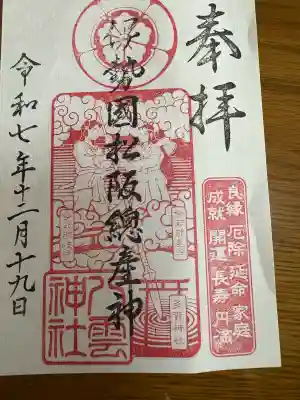 奉拝
良縁 厄除 延命 家庭
成就 開運 長寿 円満
伊勢國松阪總産神
八雲
神社
令和七年十二月十九日